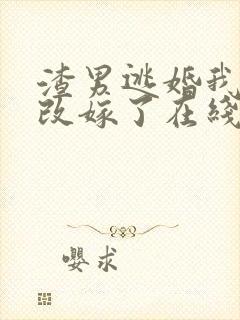 渣男逃婚我
改嫁了在綫
嚶求